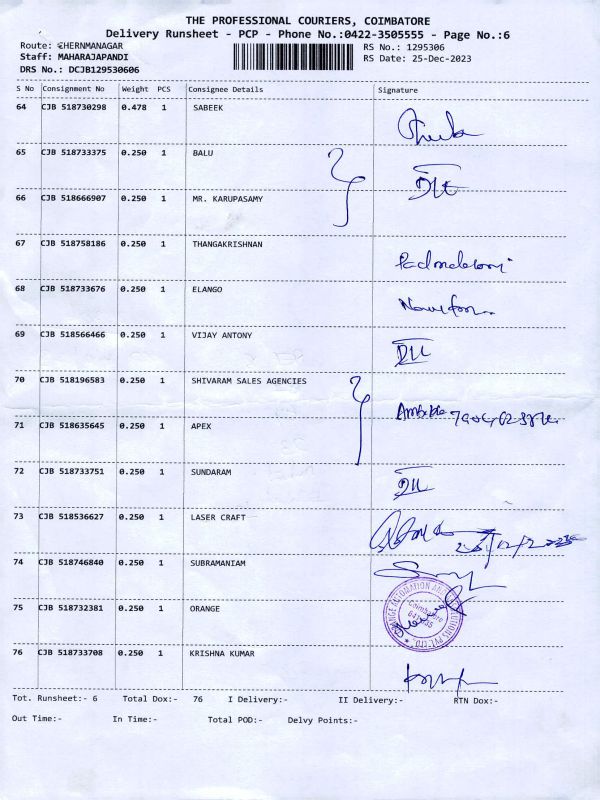 THE PROFESSIONAL COURIERS, COIMBATORE
Delivery Runsheet - PCP - Phone No.:0422-3505555 - Page No.:6
Route: CHERNMANAGAR RS No.: 1295306
Staff: MAHARAJAPANDI RS Date: 25-Dec-2023
DRS No.: DCJB129530606
S No Consignment No Weight PCS Consignee Details Signature
64 CJB 518730298 0.478 1 SABEEK
65 CJB 518733375 0.250 1 BALU
66 CJB 518666907 0.250 1 MR. KARUPASAMY
67 CJB 518758186 0.250 1 THANGAKRISHNAN
68 CJB 518733676 0.250 1 ELANGO
69 CJB 518566466 0.250 1 VIJAY ANTONY
70 CJB 518196583 0.250 1 SHIVARAM SALES AGENCIES
71 CJB 518635645 0.250 1 APEX
72 CJB 518733751 0.250 1 SUNDARAM
73 CJB 518536627 0.250 1 LASER CRAFT
74 CJB 518746840 0.250 1 SUBRAMANIAM
75 CJB 518732381 0.250 1 ORANGE
Coimbatore
76 CJB 518733708 0.250 1 KRISHNA KUMAR
Tot. Runsheet:- 6 Total Dox:- 76 I Delivery:- II Delivery:- RTN Dox:-
Out Time:- In Time:- Total POD:- Delvy Points:-